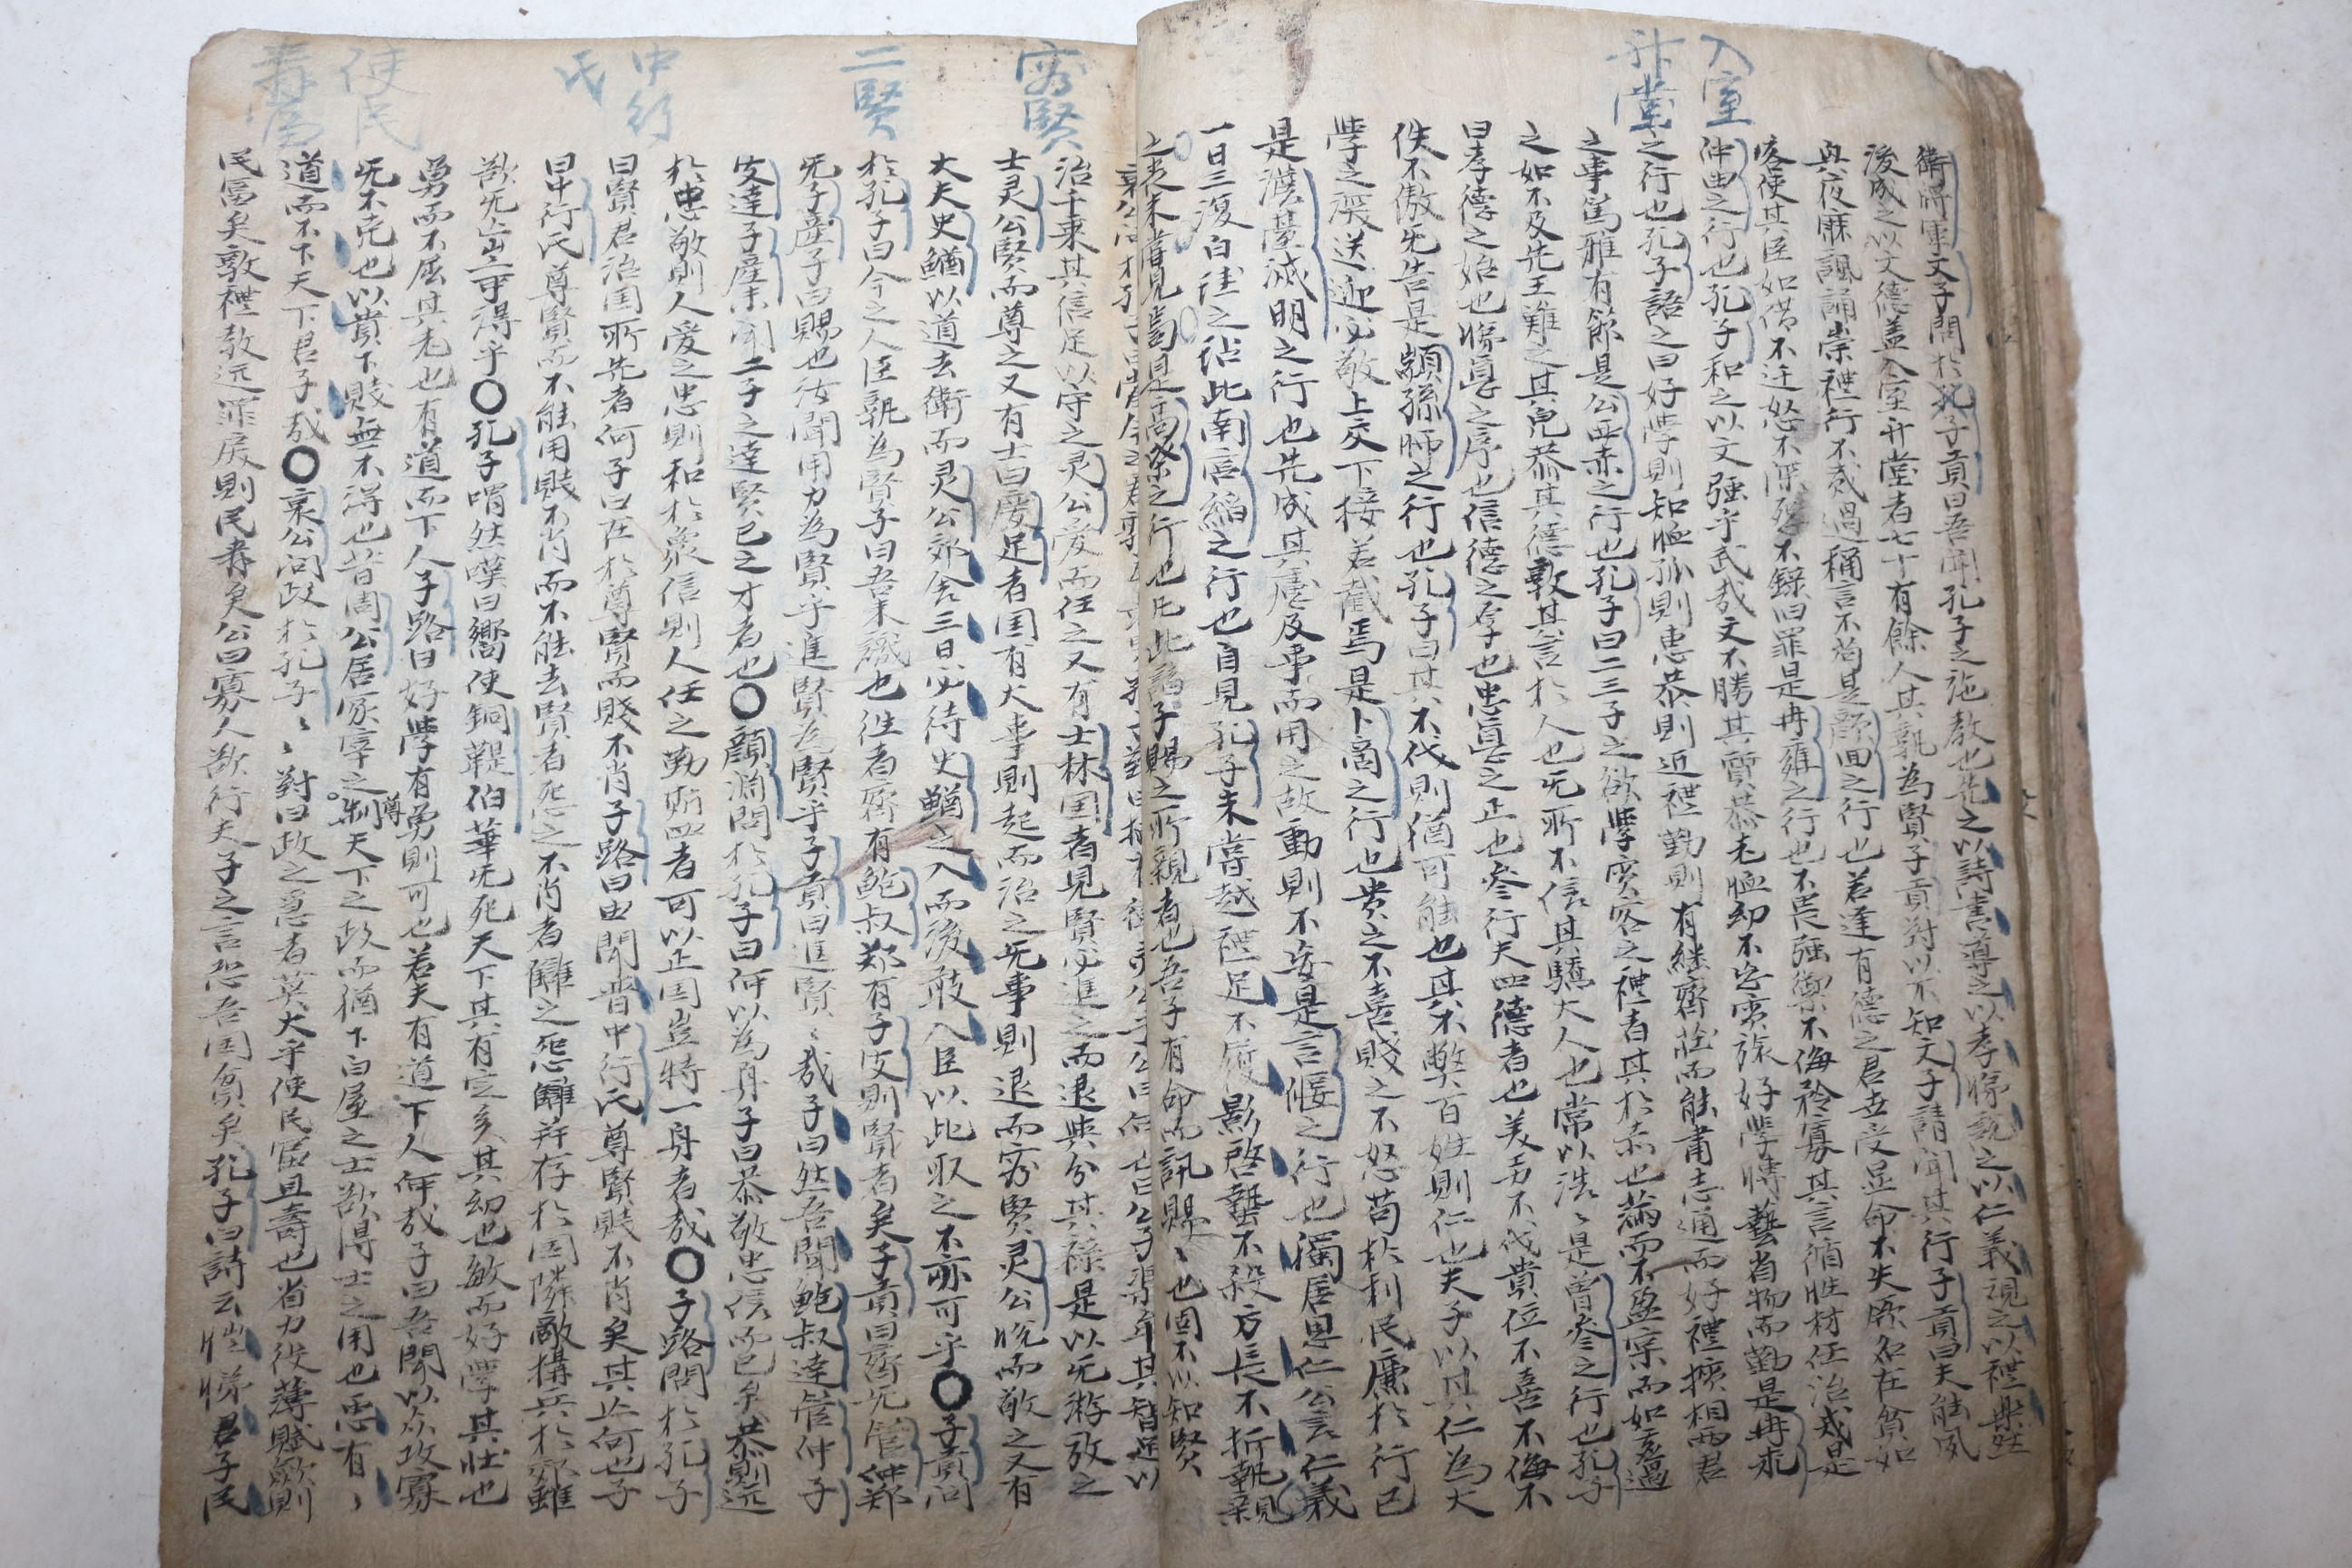 入室
升堂
衛將軍文子問於孔子貢曰吾聞孔子之施敎也先之以詩書導之以孝悌說之以仁義視之以禮樂然
後成之以文德盖入室升堂者七十有餘人其孰為賢子貢對以不知文子請聞其行子貢曰夫能夙
興夜寐諷誦崇禮行不貳過稱言不苟是顔回之行也若逢有德之君世受显命不失厥名在貧如
客使其臣如借不迁怒不深怨不錄旧罪是冉雍之行也不畏强禦不侮矜寡其言循性材任治戎是
仲由之行也孔子和之以文强乎武哉文不勝其質恭老恤幼不忘賓旅好學博藝省物而勤是冉求
之行也孔子語之曰好學則知恤孤則惠恭則近禮勤則有継齊莊而能肅志通而好禮擯相两君
之事篤雅有節是公西赤之行也孔子曰二三子之欲學賓客之禮者其於赤也滿而不盈宗而如虛過
之如不及先王難之其皃恭其德敦其言於人也无所不信其驕大人也常以浩〻是曾參之行也孔子
曰孝德之始也悌德之序也信德之厚也忠德之正也參行夫四德者也美功不伐貴位不喜不侮不
佚不傲无告是顓孫師之行也孔子曰其不伐則猶可能也其不弊百姓則仁也夫子以其仁為大
學之深送迎必敬上交下接若截焉是卜商之行也贵之不喜賤之不怒苟於利民廉於行已
是澹臺滅明之行也先成其慮及事而用之故動則不妄是言偃之行也獨居思仁公言仁義
一日三復白圭之玷此南宮縚之行也自見孔子未嘗越禮足不履影啓蟄不殺方長不折執親
之丧未嘗見齒是高柴之行也凡此諸子賜之所親者也吾子有命而訊賜〻也固不以知賢
容賢
二賢
中行氏
使民
壽富
治千乘其信足以守之灵公愛而任之又有士林国者見賢必進之而退與分其祿是以无游放之
士灵公賢而尊之又有士曰慶足者国有大事則起而治之无事則退而容賢灵公悅而敬之又有
大夫史鰌以道去衛而灵公郊舍三日必待史鰌之入而後敢入臣以此取之不亦可乎〇子貢问
於孔子曰今之人臣孰為賢子曰吾未識也往者齊有鮑叔郑有子皮則賢者矣子貢曰齊无管仲郑
无子產子曰賜也汝聞用力為賢乎進賢為賢乎子貢曰進賢〻哉子曰然吾聞鮑叔達管仲子
皮達子產未聞二子之達賢已之才者也〇顔淵問於孔子曰何以為身子曰恭敬忠信而已矣恭則远
於患敬則人爱之忠則和於衆信則人任之勤斯四者可以正国豈特一身者哉〇子路問於孔子
曰賢君治国所先者何子曰在於尊賢而賤不肖子路曰由聞晋中行氏尊賢賤不肖矣其亡何也子
曰中行氏尊賢而不能用賤不肖而不能去賢者怨之不肖者雠之怨雠并存於国隣敵搆兵於郊雖
欲无亡豈可得乎〇孔子喟然嘆曰嚮使铜鞮伯華无死天下其有定矣其幼也敏而好學其壮也
勇而不屈其老也有道而下人子路曰好學有勇則可也若夫有道下人何哉子曰吾聞以众攻寡
无不克也以貴下賤無不得也昔周公居冢宰之尊制天下之政而猶下白屋之士欲得士之用也惡有〻
道而不下天下君子哉〇哀公问政於孔子〻對曰政之急者莫大乎使民富且壽也省力役薄賦歛則
民富矣敦禮教远罪戾則民寿矣公曰寡人欲行夫子之言恐吾国貧矣孔子曰詩云愷悌君子民